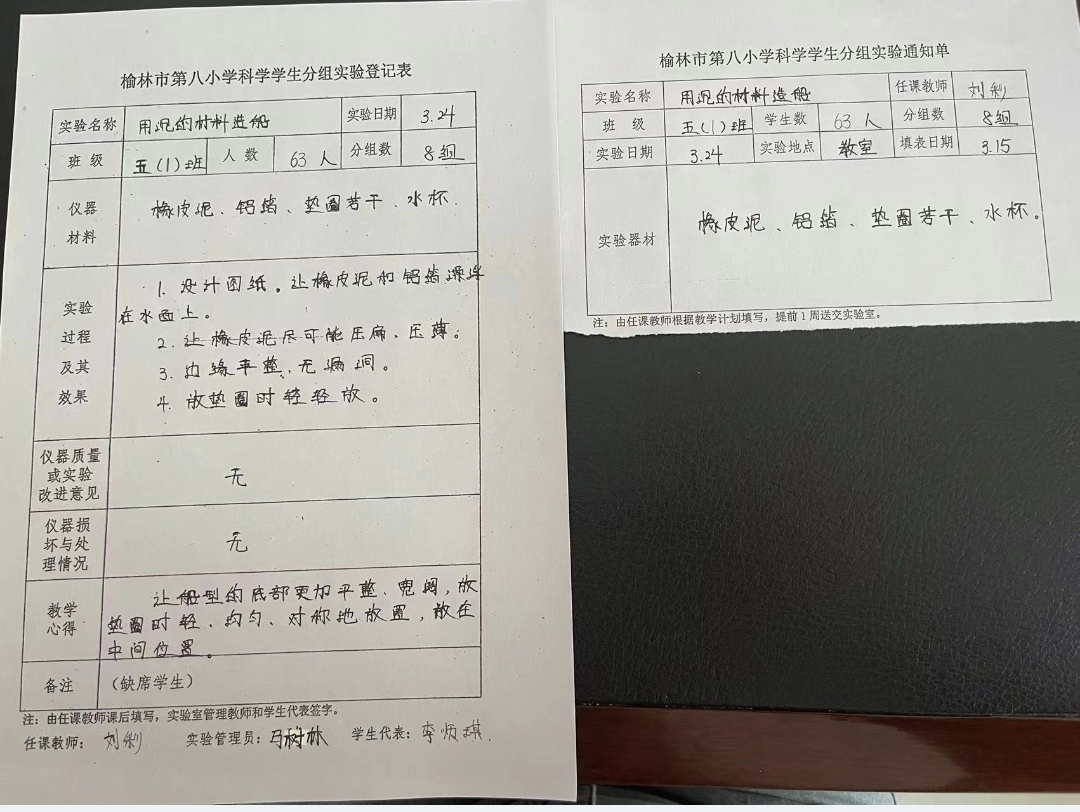 榆林市第八小学科学学生分组实验登记表
实验名称 用沉的材料造船 实验日期 3.24
班 级 五(1)班 人 数 63人 分组数 8组
仪器
材料
橡皮泥、铝箔、垫圈若干、水杯.
实验
过程
及其
效果
1. 设计图纸。让橡皮泥和铝箔漂浮
在水面上。
2. 让橡皮泥尽可能压扁、压薄;
3. 边缘平整、无漏洞。
4. 放垫圈时轻轻放。
仪器质量
或实验
改进意见
无
仪器损
坏与处
理情况
无
教学
心得
让船型的底部更加平整、宽阔,放
垫圈时轻、均匀、对称地放置,放在
中间位置。
备注 (缺席学生)
注:由任课教师课后填写,实验室管理教师和学生代表签字。
任课教师: 刘 实验管理员:马树林 学生代表:李炳琪.
榆林市第八小学科学学生分组实验通知单
实验名称 用沉的材料造船 任课教师 刘
班 级 五(1)班 学生数 63人 分组数 8组
实验日期 3.24 实验地点 教室 填表日期 3.15
实验器材
橡皮泥、铝箔、垫圈若干、水杯。
注:由任课教师根据教学计划填写,提前1周送交实验室。